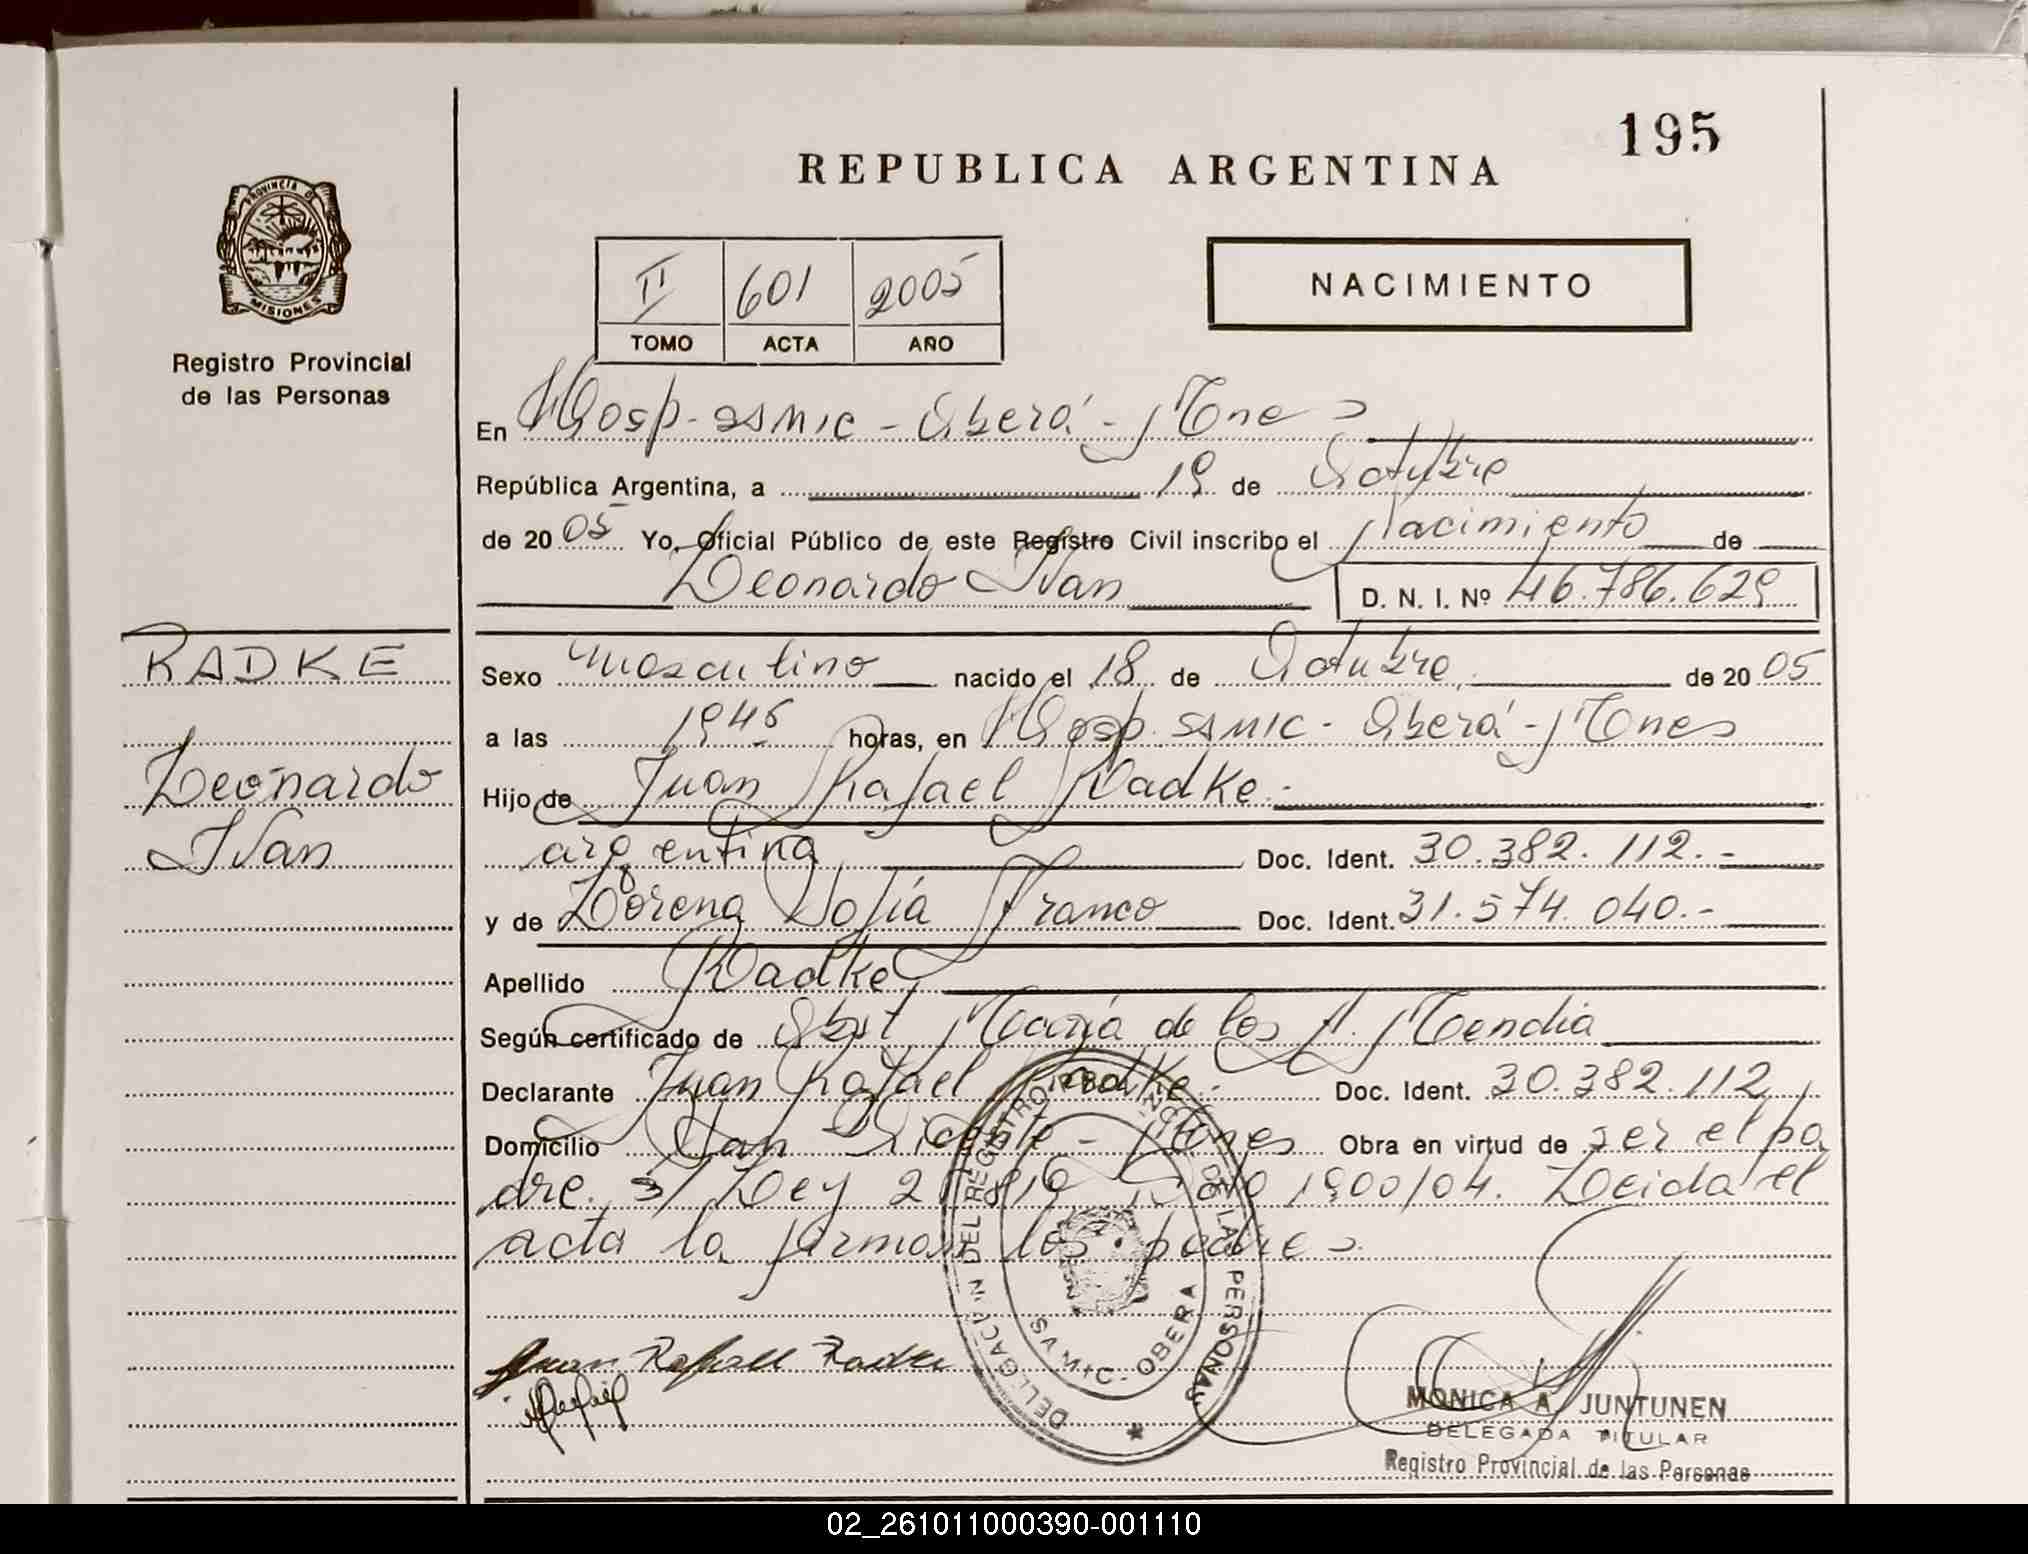 195
REPUBLICA ARGENTINA
PROVINCIA DE
MISIONES
Registro Provincial
de las Personas
II 601 2005
TOMO ACTA AÑO
NACIMIENTO
En Hosp. SAMIC - Oberá - Mones
República Argentina, a 19 de Octubre
de 2005 Yo, Oficial Público de este Registro Civil inscribo el Nacimiento de
Leonardo Ivan D. N. I. Nº 46.786.629
RADKE
Leonardo
Ivan
Sexo masculino nacido el 18 de Octubre de 2005
a las 1945 horas, en Hosp. SAMIC - Oberá - Mones
Hijo de Juan Rafael Radke.-
argentina Doc. Ident. 30.382.112.-
y de Lorena Sofía Franco Doc. Ident. 31.574.040.-
Apellido Radke
Según certificado de Obst. María de los A. Mendia
Declarante Juan Rafael Radke.- Doc. Ident. 30.382.112
Domicilio San Vicente - Mones Obra en virtud de ser el pa
dre. s/ Ley 21.819 1900/04. Leida el
acta la firman los padres.
Juan Rafael Radke
DELEGACN DEL REGISTRO PROVINCIAL DE LAS PERSONAS
SAMIC - OBERA
MONICA A. JUNTUNEN
DELEGADA TITULAR
Registro Provincial de las Personas
02_261011000390-001110